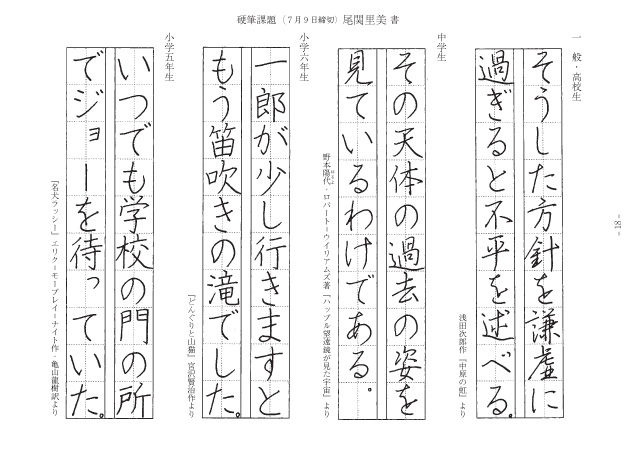 硬筆課題（７月９日締切）尾関里美 書
一般・高校生
そうした方針を謙虚に
過ぎると不平を述べる。
浅田次郎作『中原の虹』より
中学生
その天体の過去の姿を
見ているわけである。
野本陽代・ロバート＝ウイリアムズ著『ハッブル望遠鏡が見た宇宙』より
小学六年生
一郎が少し行きますと
もう笛吹きの滝でした。
『どんぐりと山猫』宮沢賢治作より
小学五年生
いつでも学校の門の所
でジョーを待っていた。
『名犬ラッシー』エリク＝モーブレイ＝ナイト作 亀山龍樹訳より
－18－